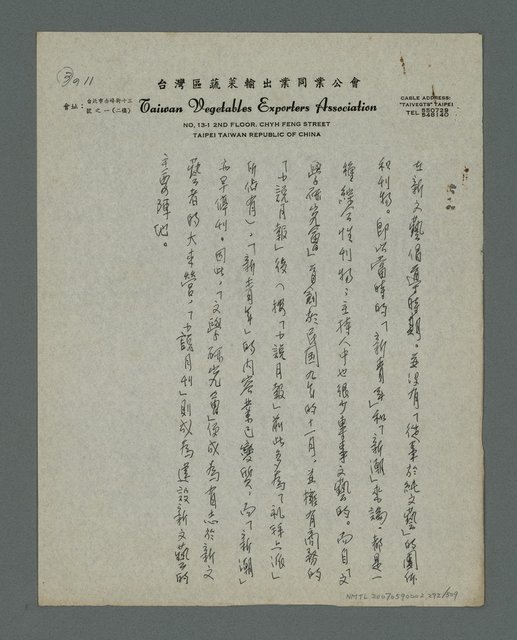 ③の11
台灣區蔬菜輸出業同業公會
會址：台北市赤峰街十三號之一(二樓)
Taiwan Vegetables Exporters Association
CABLE ADDRESS:
"TAIVEGTS" TAIPEI
TEL 550729
548140
NO, 13-1 2ND FLOOR, CHYH FENG STREET
TAIPEI TAIWAN REPUBLIC OF CHINA
在新文藝倡導時期。並沒有「從事於純文藝」的團体
和刊物。即以當時的「新青年」和「新潮」來講，都是一
種綜合性刊物；主持人中也很少專事文藝的。而自「文
學研究會」首創於民国九年的十一月，並擁有商務的
「小說月報」後（按「小說月報」前此多為「礼拜六派」
所佔有），「新青年」的內容業已變質，而「新潮」
亦早停刊。因此，「文學研究會」便成為有志於新文
藝者的大本營，「小說月刊」則成為建設新文藝的
主要陣地。
NMTL 20070590002 292/509